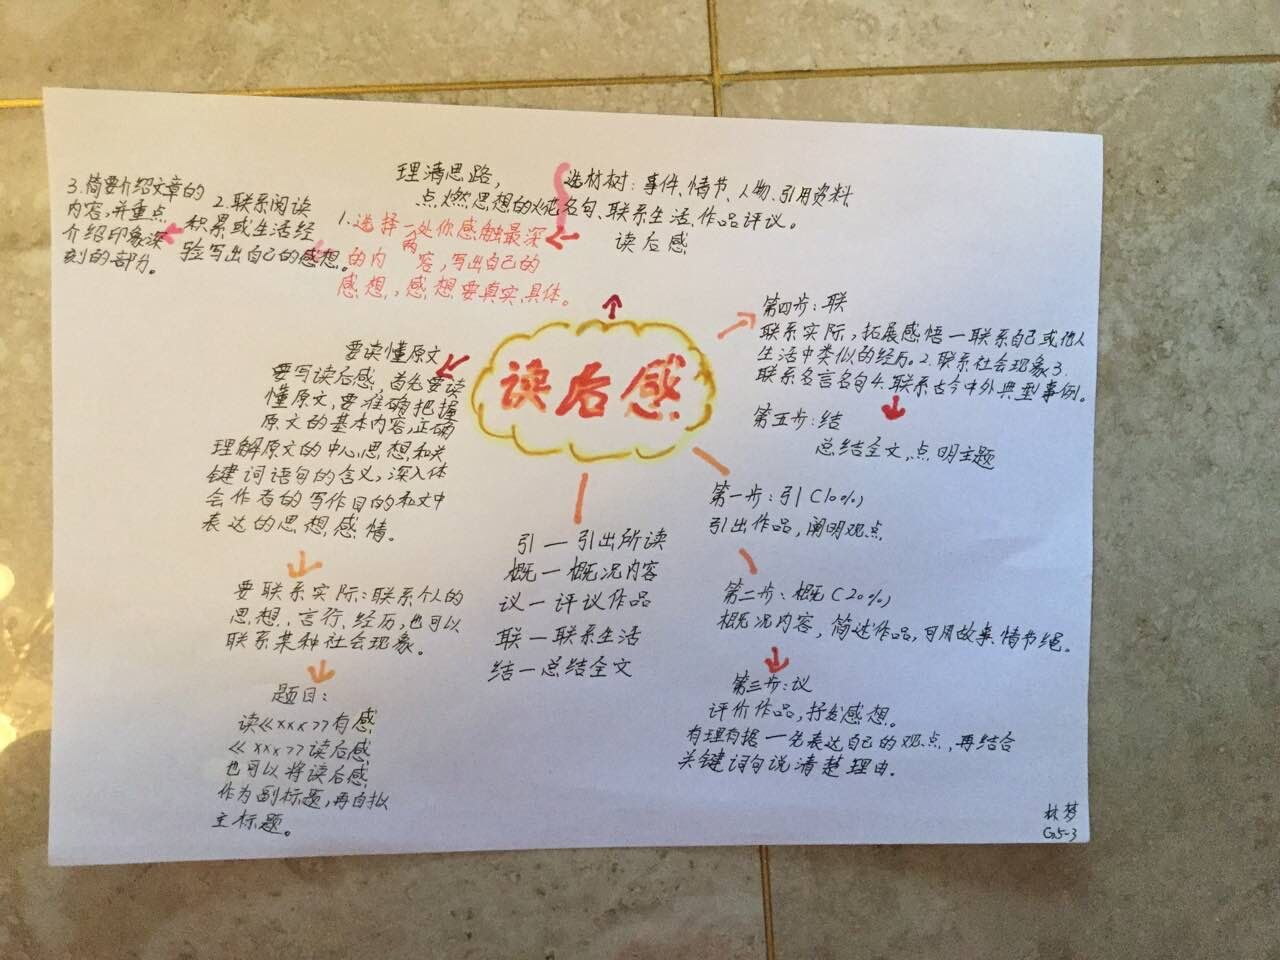 理清思路，
点燃思想的火花
选材树：事件、情节、人物、引用资料
名句、联系生活、作品评议。
读后感
1.选择一两处你感触最深
的内容，写出自己的
感想，感想要真实、具体。
2.联系阅读
积累或生活经
验写出自己的感想。
3.简要介绍文章的
内容，并重点
介绍印象深
刻的部分。
读后感
要读懂原文
要写读后感，首先要读
懂原文，要准确把握
原文的基本内容，正确
理解原文的中心思想和关
键词语句的含义，深入体
会作者的写作目的和文中
表达的思想感情。
要联系实际：联系个人的
思想、言行、经历，也可以
联系某种社会现象。
题目：
读<<xxx>>有感
<<xxx>>读后感
也可以将读后感
作为副标题，再自拟
主标题。
引—引出所读
概—概况内容
议—评议作品
联—联系生活
结—总结全文
第一步：引(10%,
引出作品，阐明观点
第二步：概(20%,
概况内容，简述作品，可用故事情节绳。
第三步：议
评价作品，抒发感想。
有理有据—先表达自己的观点，再结合
关键词句说清楚理由。
第四步：联
联系实际，拓展感悟—联系自己或他人
生活中类似的经历。2.联系社会现象3.
联系名言名句4.联系古今中外典型事例。
第五步：结
总结全文，点明主题
林梦
G5-3